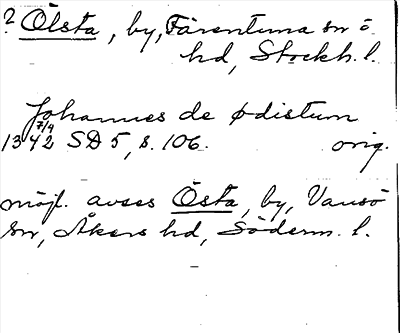 ? Ölsta, by, Färentuna sn o
hd, Stockh. l.
Johannes de ødistum
13 7/9 42 SD 5, s. 106. orig.
möjl. avses Östa, by, Vansö
sn, Åkers hd, Söderm. l.